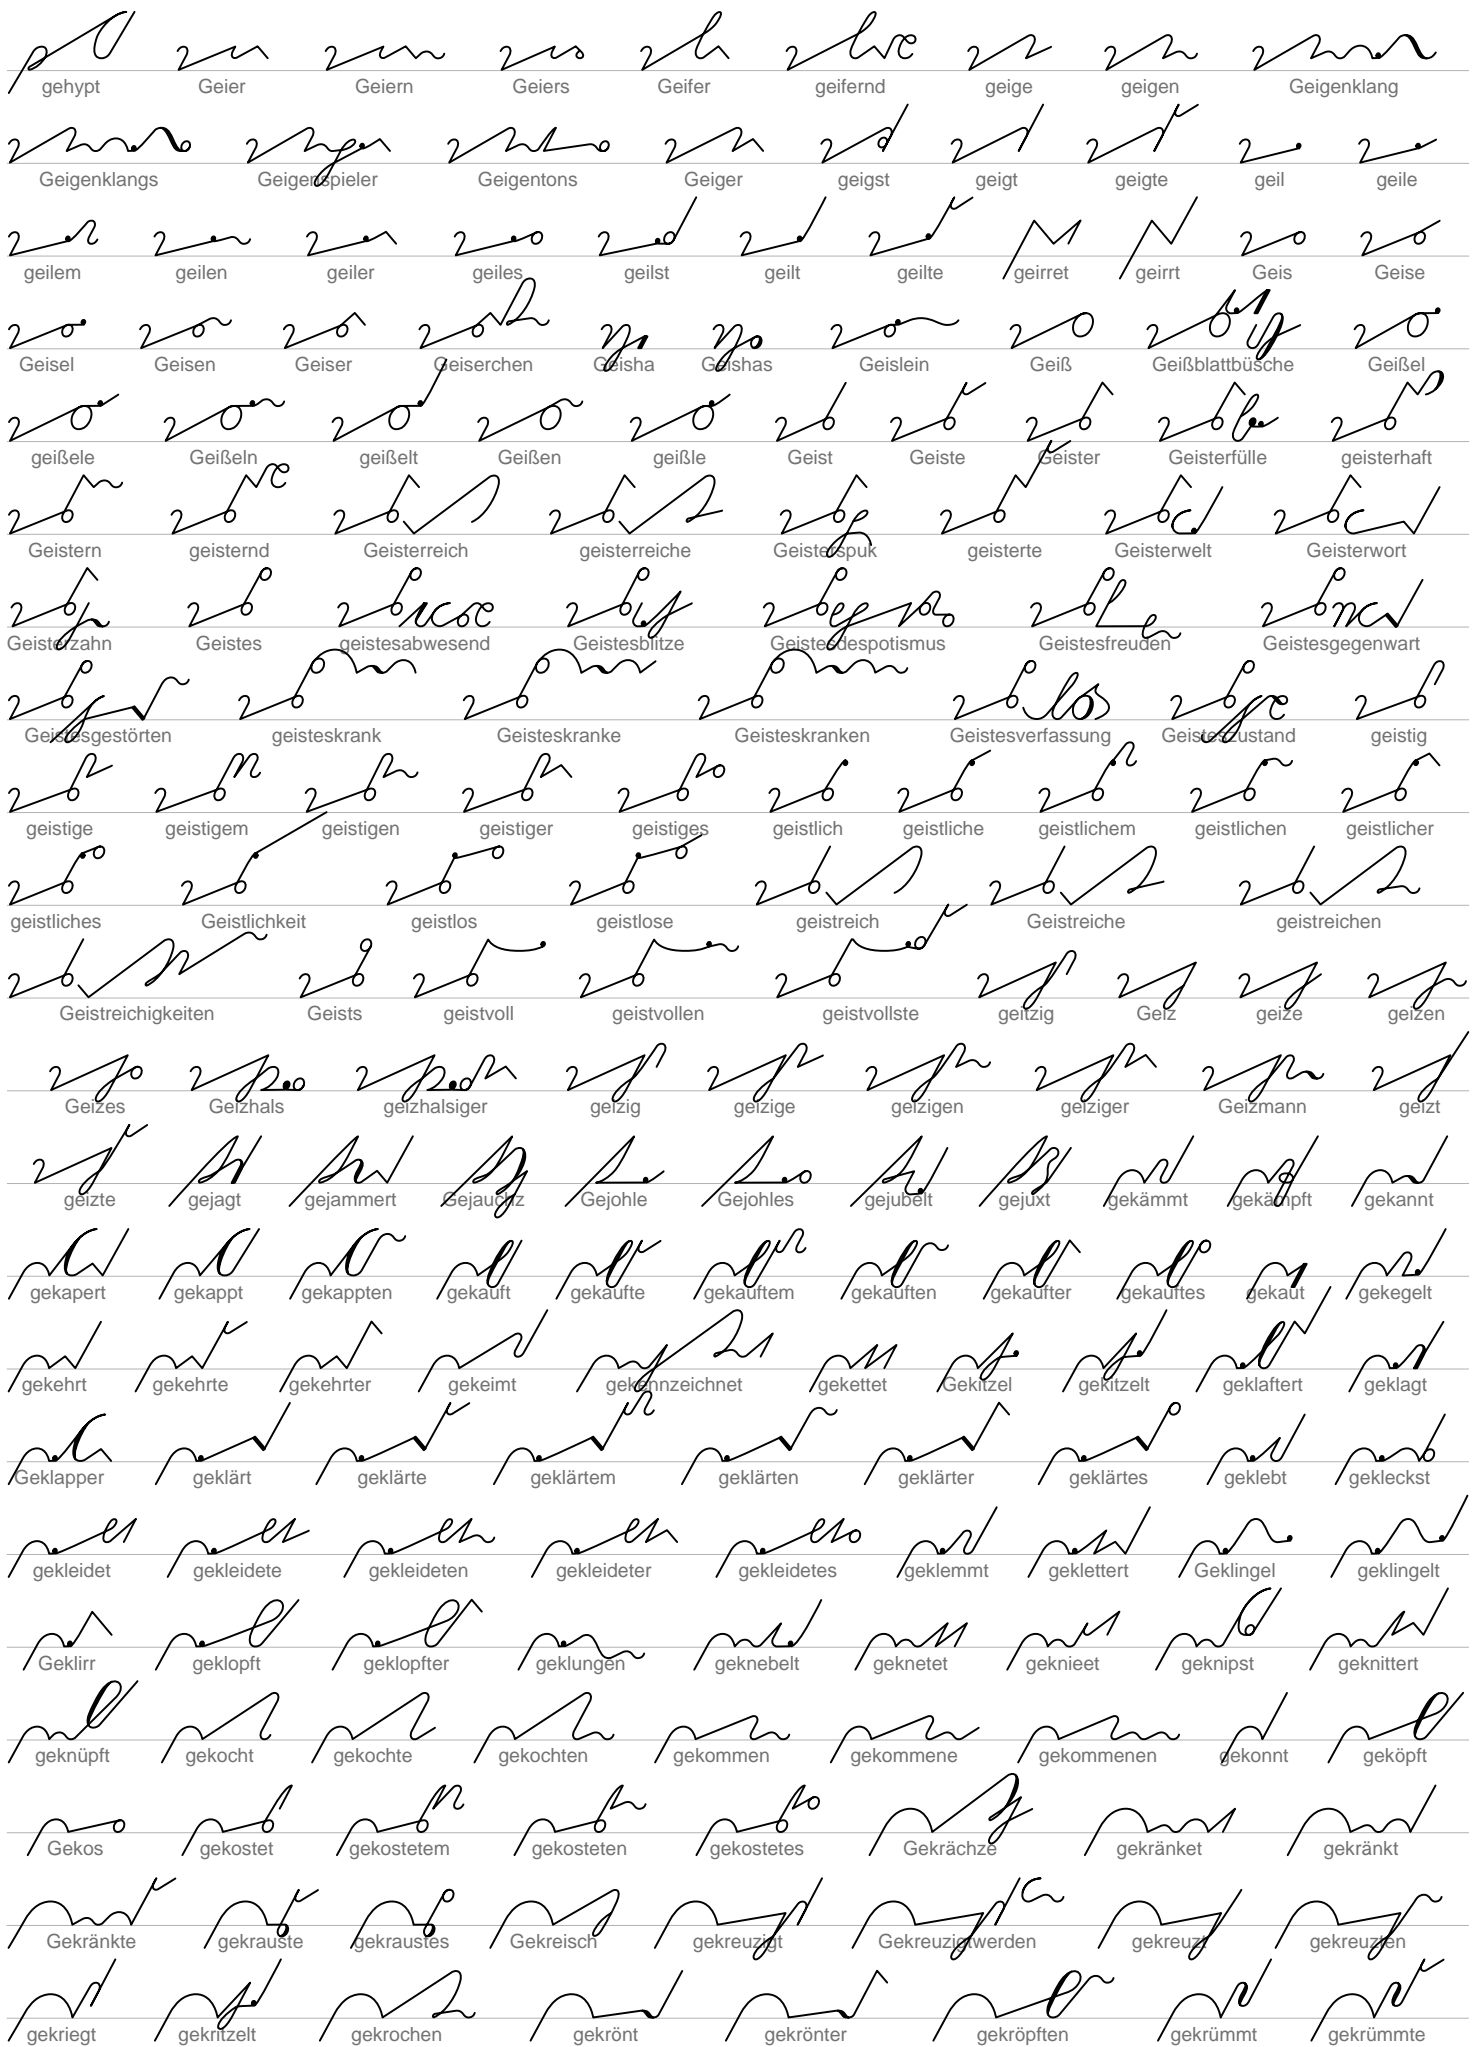 gehypt Geier Geiern Geiers Geifer geifernd geige geigen Geigenklang
Geigenklangs Geigenspieler Geigentons Geiger geigst geigt geigte geil geile
geilem geilen geiler geiles geilst geilt geilte geirret geirrt Geis Geise
Geisel Geisen Geiser Geiserchen Geisha Geishas Geislein Geiß Geißblattbüsche Geißel
geißele Geißeln geißelt Geißen geißle Geist Geiste Geister Geisterfülle geisterhaft
Geistern geisternd Geisterreich geisterreiche Geisterspuk geisterte Geisterwelt Geisterwort
Geisterzahn Geistes geistesabwesend Geistesblitze Geistesdespotismus Geistesfreuden Geistesgegenwart
Geistesgestörten geisteskrank Geisteskranke Geisteskranken Geistesverfassung Geisteszustand geistig
geistige geistigem geistigen geistiger geistiges geistlich geistliche geistlichem geistlichen geistlicher
geistliches Geistlichkeit geistlos geistlose geistreich Geistreiche geistreichen
Geistreichigkeiten Geists geistvoll geistvollen geistvollste geitzig Geiz geize geizen
Geizes Geizhals geizhalsiger geizig geizige geizigen geiziger Geizmann geizt
geizte gejagt gejammert Gejauchz Gejohle Gejohles gejubelt gejuxt gekämmt gekämpft gekannt
gekapert gekappt gekappten gekauft gekaufte gekauftem gekauften gekaufter gekauftes gekaut gekegelt
gekehrt gekehrte gekehrter gekeimt gekennzeichnet gekettet Gekitzel gekitzelt geklaftert geklagt
Geklapper geklärt geklärte geklärtem geklärten geklärter geklärtes geklebt gekleckst
gekleidet gekleidete gekleideten gekleideter gekleidetes geklemmt geklettert Geklingel geklingelt
Geklirr geklopft geklopfter geklungen geknebelt geknetet geknieet geknipst geknittert
geknüpft gekocht gekochte gekochten gekommen gekommene gekommenen gekonnt geköpft
Gekos gekostet gekostetem gekosteten gekostetes Gekrächze gekränket gekränkt
Gekränkte gekrauste gekraustes Gekreisch gekreuzigt Gekreuzigtwerden gekreuzt gekreuzten
gekriegt gekritzelt gekrochen gekrönt gekrönter gekröpften gekrümmt gekrümmte